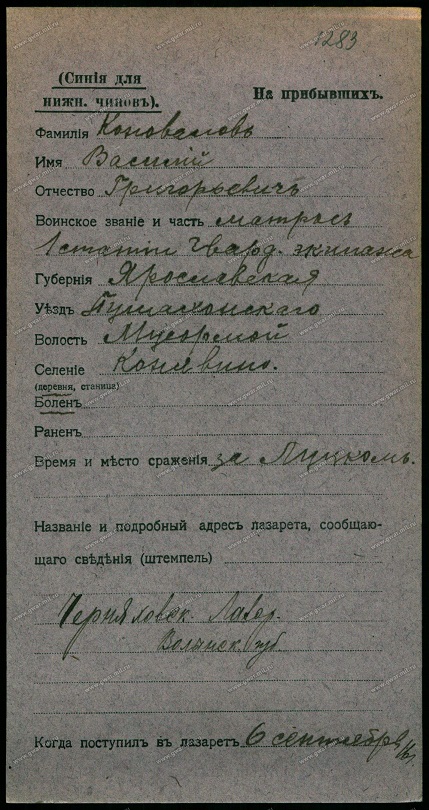 1283
(Синія для
нижн. чиновъ).
На прибывшихъ.
Фамилія Коноваловъ
Имя Василій
Отчество Григорьевичъ
Воинское званіе и часть матросъ
Гвард. экипажа
Губернія Ярославская
Уѣздъ
Волость
Селеніе Конявино.
(деревня, станица)
Боленъ
Раненъ
Время и мѣсто сраженія за Луцкомъ.
Названіе и подробный адресъ лазарета, сообщаю-
щаго свѣдѣнія (штемпель)
Лазар.
Волынск. губ.
Когда поступилъ въ лазаретъ 6 сентября